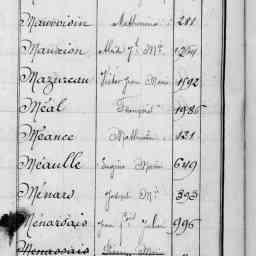 Mauvoisin Mathurine 211
Mauxion
Mazureau Victor Jean Marie 1592
Méal François 1986
Méance Mathurin 121
Méaulle Eugène Marie 649
Ménard Joseph Mie 393
Ménardais Jean Fçois Julien 996
Menassais